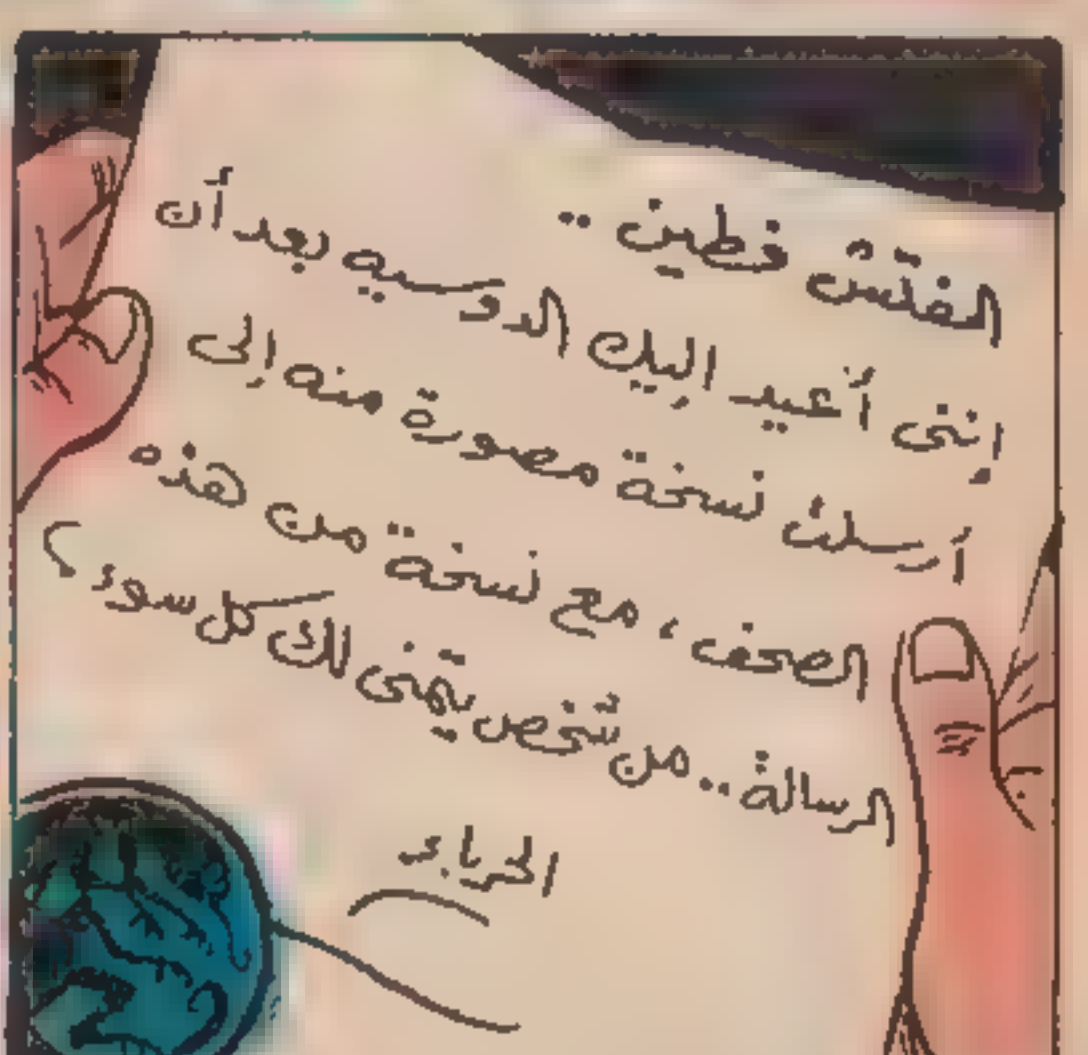 المفتش فطين ..
إننى أعيد إليك الدوسيه بعد أن
أرسلت نسخة مصورة منه إلى
الصحف ، مع نسخة من هذه
الرسالة .. من شخص يتمنى لك كل سوء ؟
الحرباء